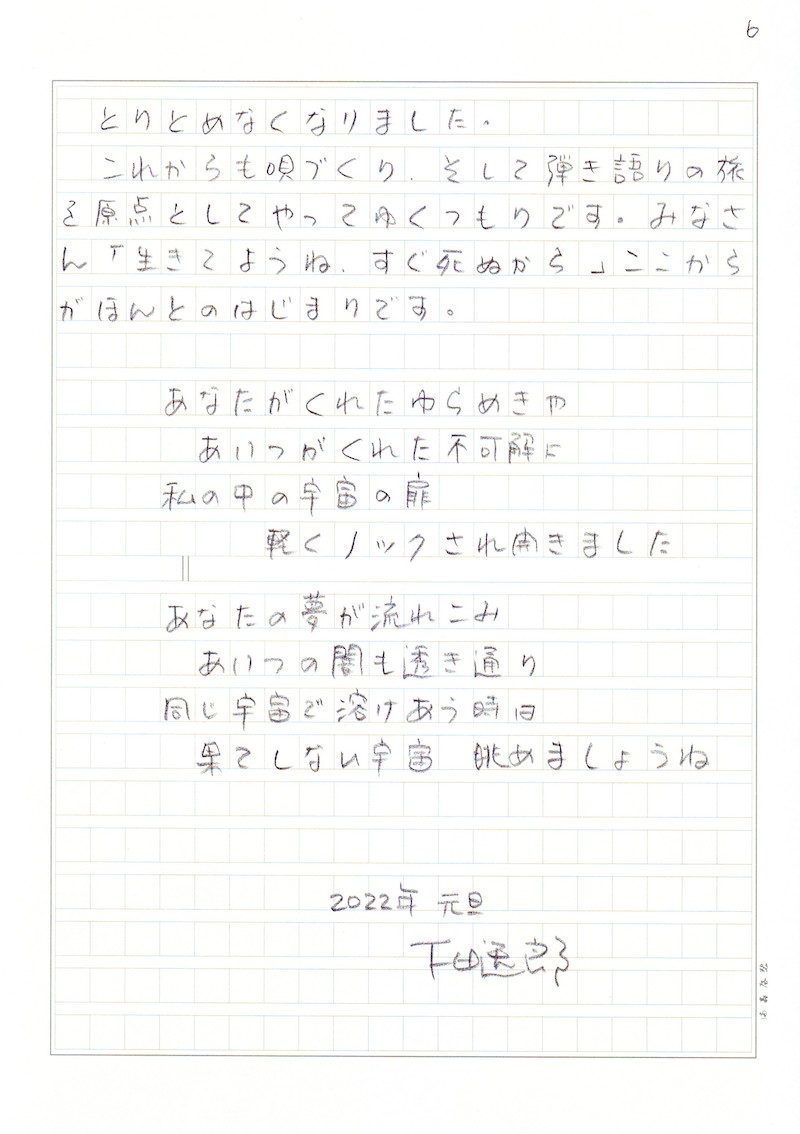 6
とりとめなくなりました。
これからも唄づくり、そして弾き語りの旅
を原点としてやってゆくつもりです。みなさ
ん「生きてようね、すぐ死ぬから」ここから
がほんとのはじまりです。
あなたがくれたゆらめきや
あいつがくれた不可解に
私の中の宇宙の扉
軽くノックされ開きました
あなたの夢が流れこみ
あいつの闇も透き通り
同じ宇宙で溶けあう時は
果てしない宇宙 眺めましょうね
2022年 元旦
下田逸郎